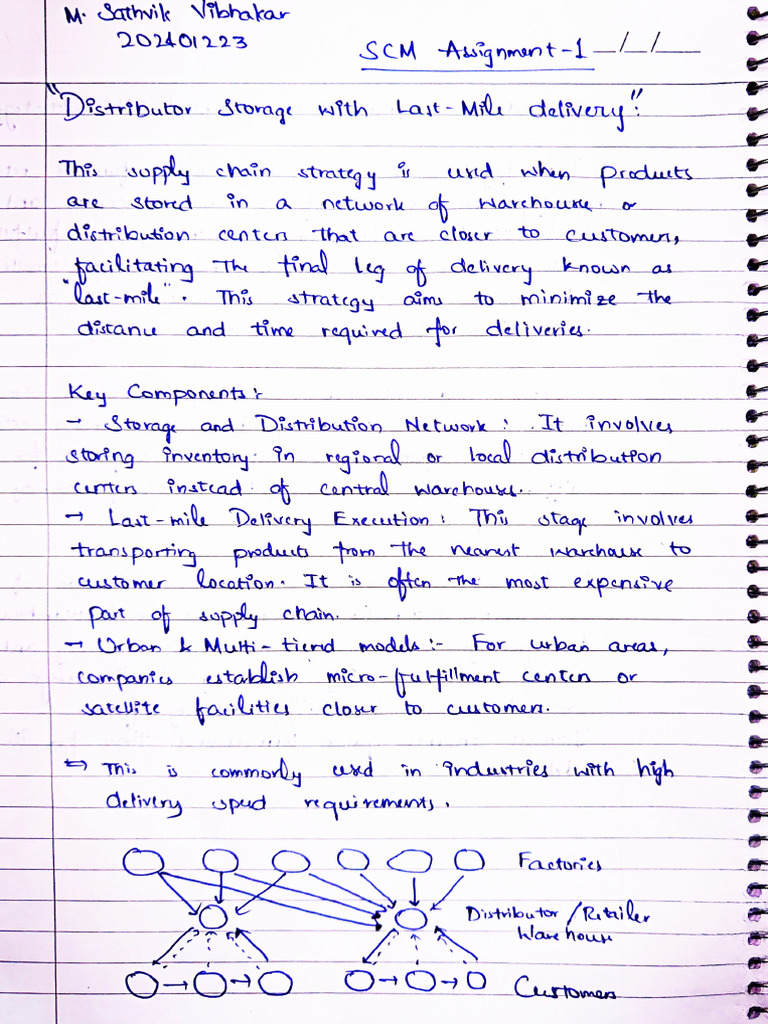 M. Sathvik Vibhakar
202401223
SCM Assignment-1 __/__/__
"Distributor Storage with Last-Mile delivery":
This supply chain strategy is used when products
are stored in a network of warehouse or
distribution centers that are closer to customers,
facilitating the final leg of delivery known as
"last-mile". This strategy aims to minimize the
distance and time required for deliveries.
Key Components:-
→ Storage and Distribution Network: It involves
storing inventory in regional or local distribution
centers instead of central warehouses.
→ Last-mile Delivery Execution: This stage involves
transporting products from the nearest warehouse to
customer location. It is often the most expensive
part of supply chain.
→ Urban & Multi-tiered models:- For urban areas,
companies establish micro-fulfillment centers or
satellite facilities closer to customers.
⇒ This is commonly used in industries with high
delivery speed requirements.
Factories
Distributor/Retailer
Warehouse
Customers